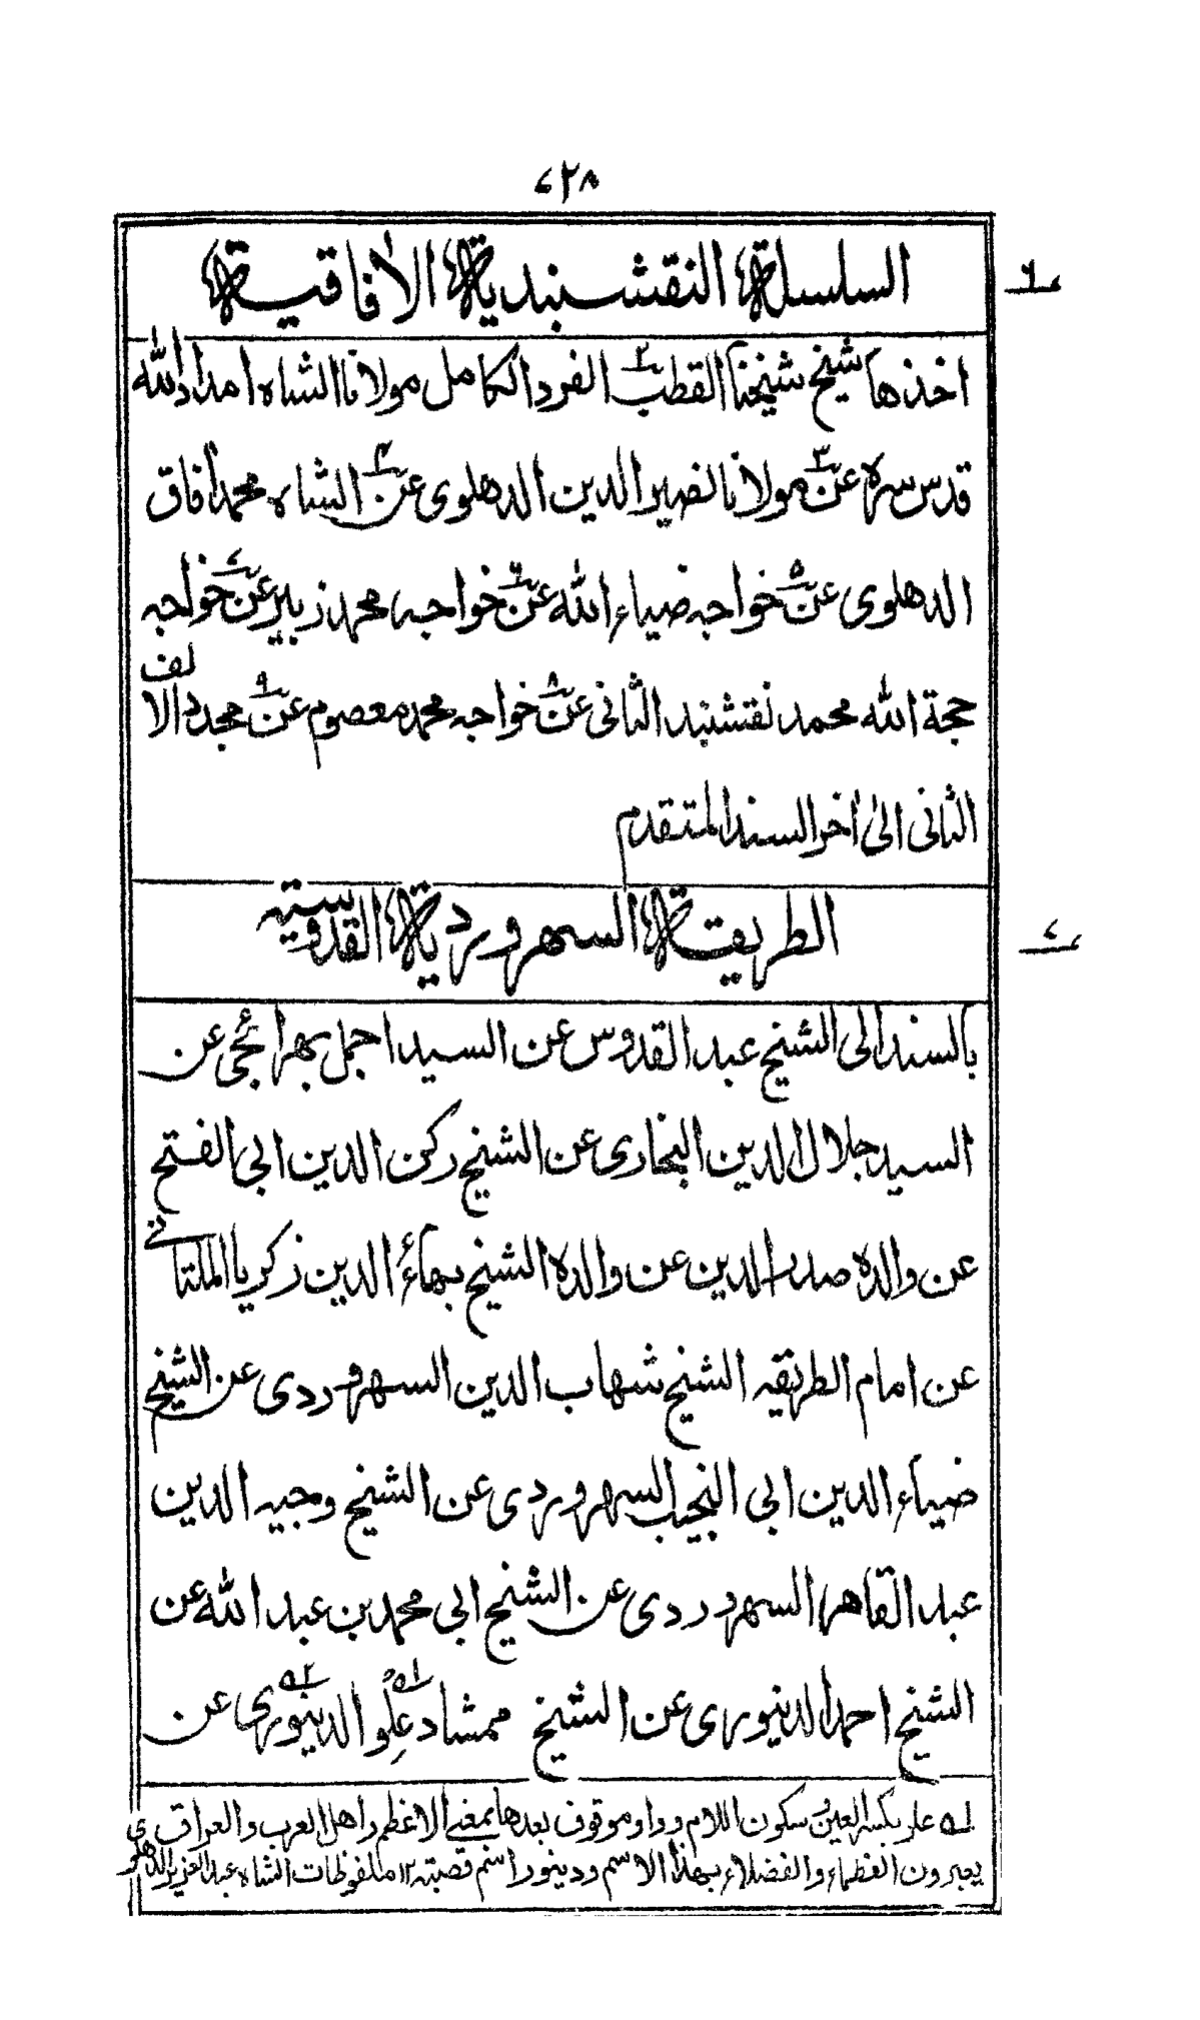 ٧٢٨
السلسلة النقشبندية الآفاقية
٦
اخذها شيخ شيخنا القطب٢ الفرد الكامل مولانا الشاه امداد الله
قدس سره عن٣ مولانا نصير الدين الدهلوى عن٤ الشاه محمد آفاق
الدهلوى عن٥ خواجه ضياء الله عن٦ خواجه محمد زبير عن٧ خواجه
حجة الله محمد نقشبند الثانى عن٨ خواجه محمد معصوم عن٩ مجدد الالف
الثانى الى آخر السند المتقدم
الطريقة السهروردية القدوسية
٧
بالسند الى الشيخ عبد القدوس عن السيد اجمل بهرائچى عن
السيد جلال الدين البخارى عن الشيخ ركن الدين ابى الفتح
عن والده صدر الدين عن والده الشيخ بهاء الدين زكريا الملتانى
عن امام الطريقه الشيخ شهاب الدين السهروردى عن الشيخ
ضياء الدين ابى النجيب السهروردى عن الشيخ وجيه الدين
عبد القاهر السهروردى عن الشيخ ابى محمد بن عبد الله عن
الشيخ احمد الدينورى عن الشيخ ممشاد علو١ه الدينورى٢ه عن
١ه علو بكسر العين وسكون اللام وواو موقوف بعدها بمعنى الاعظم واهل العرب والعراق
يعبرون العظماء والفضلاء بهذا الاسم ودينور اسم قصبته ١٢ ملفوظات الشاه عبد العزيز الدهلوى